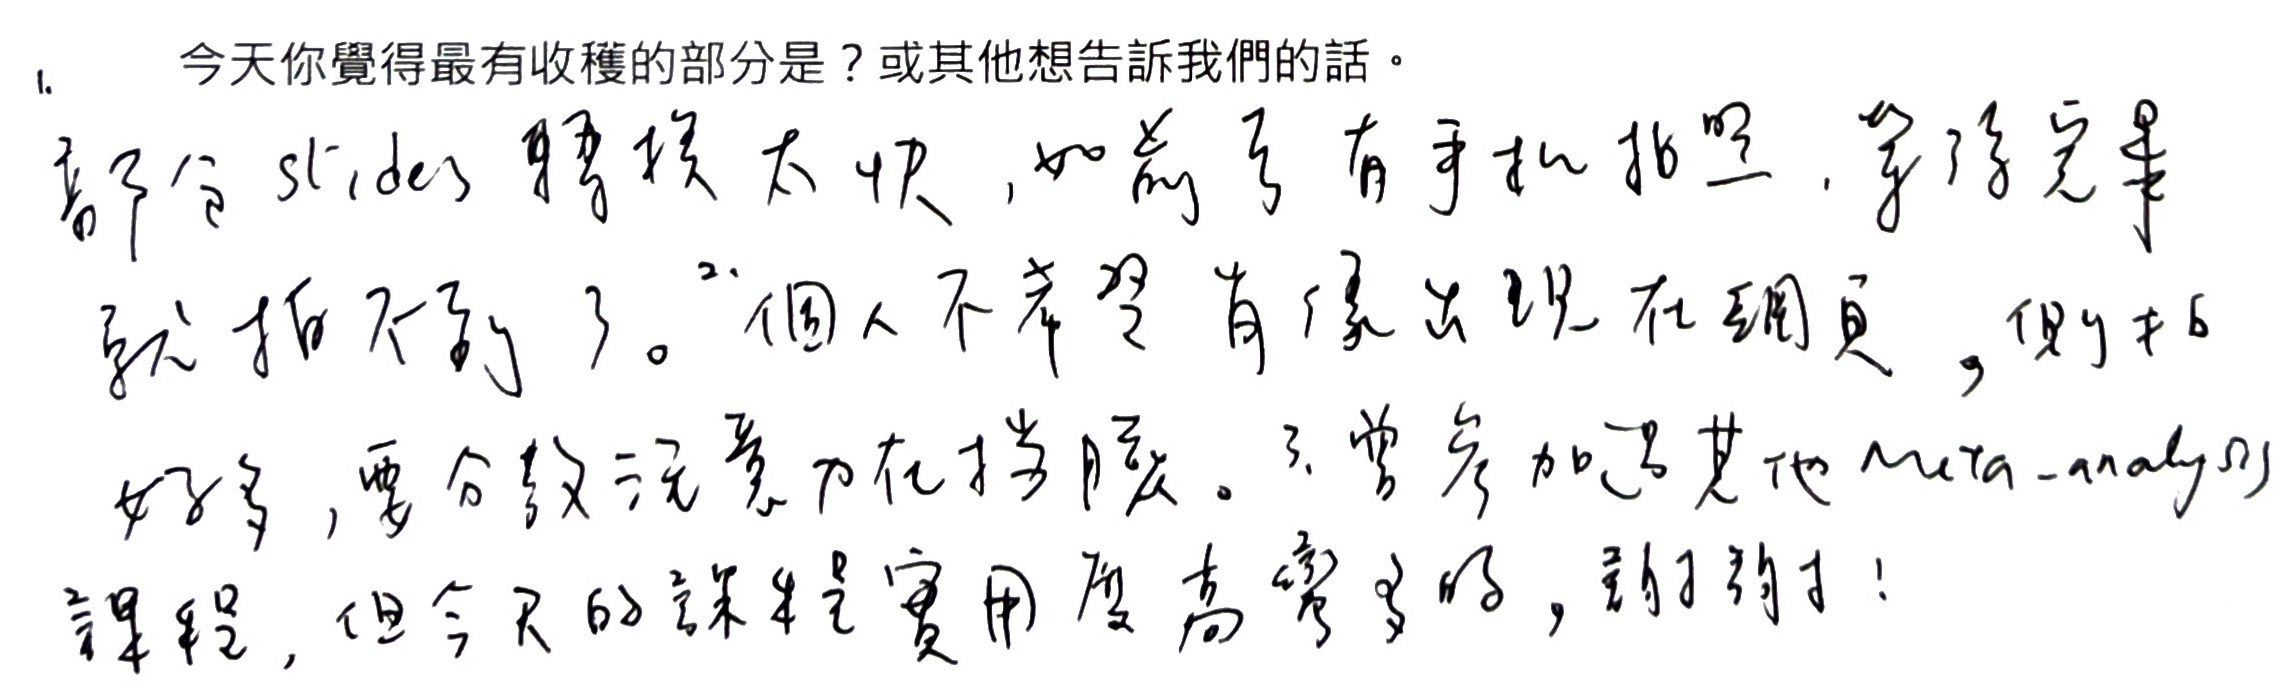 今天你覺得最有收穫的部分是？或其他想告訴我們的話。
1.
部分 slides 轉換太快，如前方有手机拍照，等待完畢
就拍不到了。2. 個人不希望肖像出現在網頁，側拍
好多，要分散注意力在擋臉。3. 曾參加過其他 Meta-analysis
課程，但今天的課程實用度高蠻多的，謝謝！